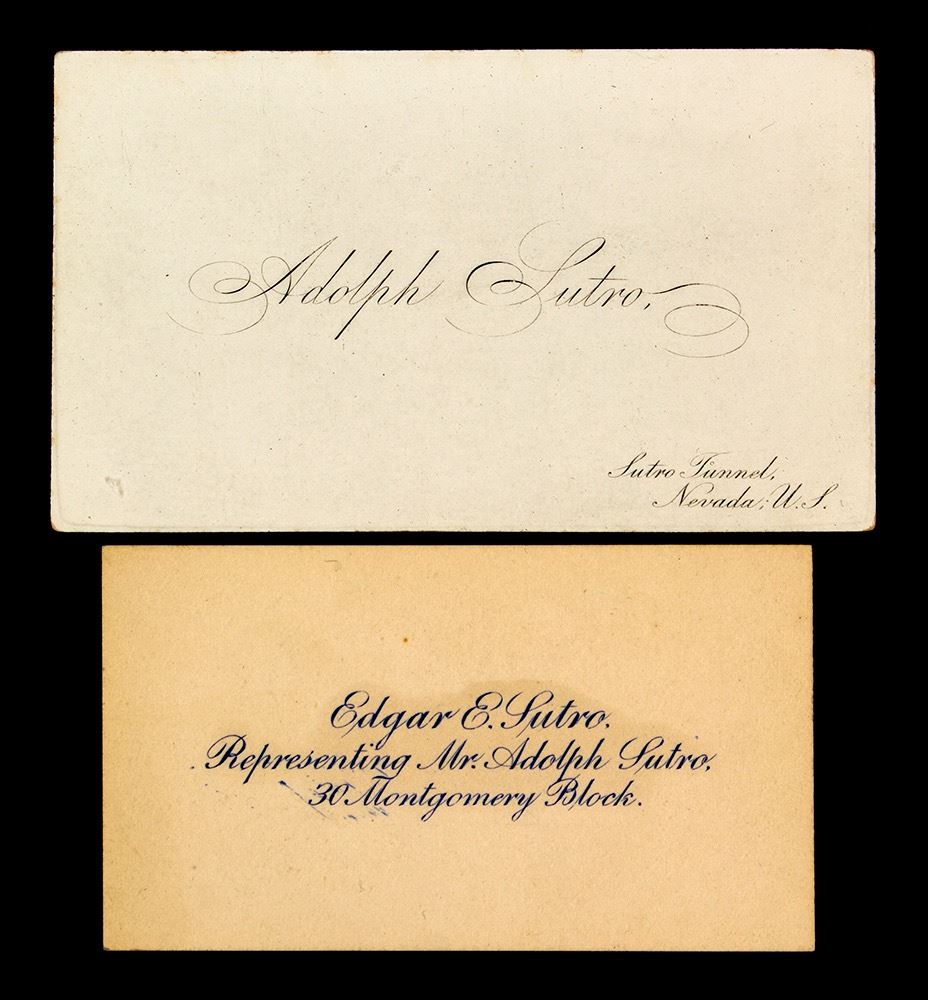 Adolph Sutro.
Sutro Tunnel,
Nevada, U. S.
Edgar E. Sutro.
Representing Mr. Adolph Sutro,
30 Montgomery Block.